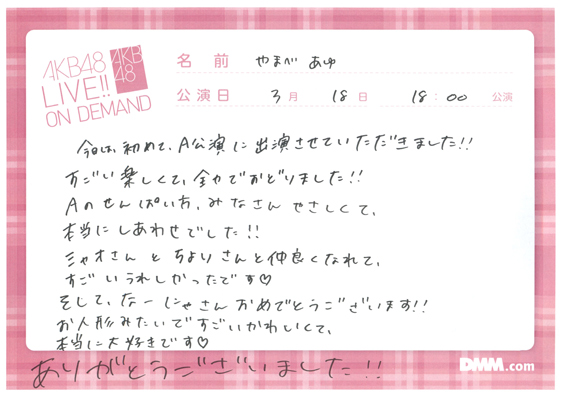 AKB48
LIVE!!
ON DEMAND
AKB
48
名前 やまべ あゆ
公演日 3月 18日 18:00 公演
今日は、初めて、A公演に出演させていただきました!!
すごい楽しくて、全力でおどりました!!
Aのせんぱい方、みなさんやさしくて、
本当にしあわせでした!!
シャオさんとちよりさんと仲良くなれて、
すごいうれしかったです♡
そして、なーにゃさんおめでとうございます!!
お人形みたいですごいかわいくて、
本当に大好きです♡
ありがとうございました!!
DMM.com